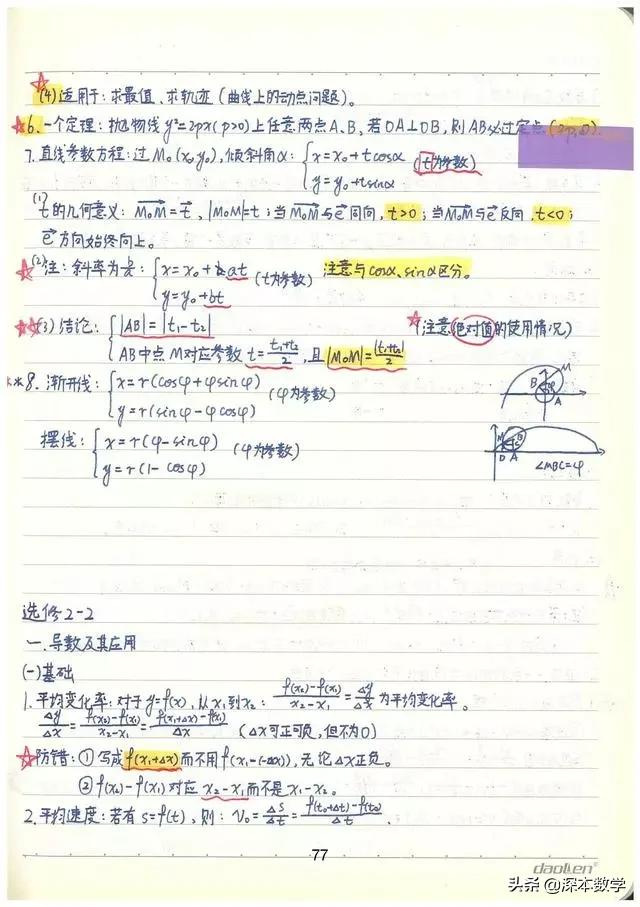 ☆(4)适用于:求最值、求轨迹(曲线上的动点问题)。
☆6、一个定理:抛物线y²=2px(p>0)上任意两点A、B,若OA⊥OB,则AB必过定点(2p,0).
7.直线参数方程:过M₀(x₀,y₀),倾斜角α:{x=x₀+tcosα (t为参数)
y=y₀+tsinα
(1)t的几何意义:M₀M→=t→,|M₀M|=t;当M₀M→与e→同向,t>0;当M₀M→与e→反向,t<0;
e→方向始终向上。
☆(2)注:斜率为b/a:{x=x₀+at (t为参数) 注意与cosα、sinα区分。
y=y₀+bt
☆☆(3)结论:{|AB|=|t₁-t₂| *(注意绝对值的使用情况)
AB中点M对应参数t=(t₁+t₂)/2,且|M₀M|=|t₁+t₂|/2
**8.渐开线:{x=r(cosφ+φsinφ) (φ为参数)
y=r(sinφ-φcosφ)
M
B φ
A
摆线:{x=r(φ-sinφ) (φ为参数)
y=r(1-cosφ)
M B
D A
∠MBC=φ
选修2-2
一.导数及其应用
(一)基础
1.平均变化率:对于y=f(x),从x₁到x₂:(f(x₂)-f(x₁))/(x₂-x₁)=Δy/Δx为平均变化率。
Δy/Δx=(f(x₂)-f(x₁))/(x₂-x₁)=(f(x₁+Δx)-f(x₁))/Δx (Δx可正可负,但不为0)
☆防错:①写成f(x₁+Δx)而不用f(x₁-(-Δx)),无论Δx正负。
②f(x₂)-f(x₁)对应x₂-x₁而不是x₁-x₂。
2.平均速度:若有s=f(t),则:v₀=Δs/Δt=(f(t₀+Δt)-f(t₀))/Δt.
77
daolen®
头条@深本数学